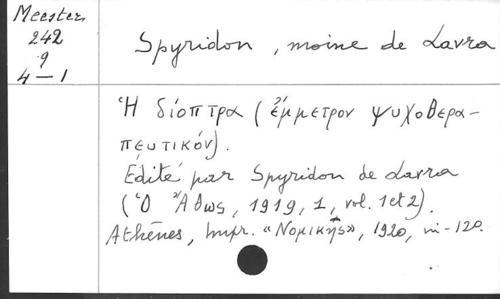 Meester
242
9
4-1
Spyridon, moine de Lavra
Ἡ δίοπτρα (ἔμμετρον ψυχοθερα-
πευτικόν).
Edité par Spyridon de Lavra
(Ὁ Ἄθως, 1919, 1, vol. 1 et 2).
Athènes, Impr. «Νομικῆς», 1920, in-120.